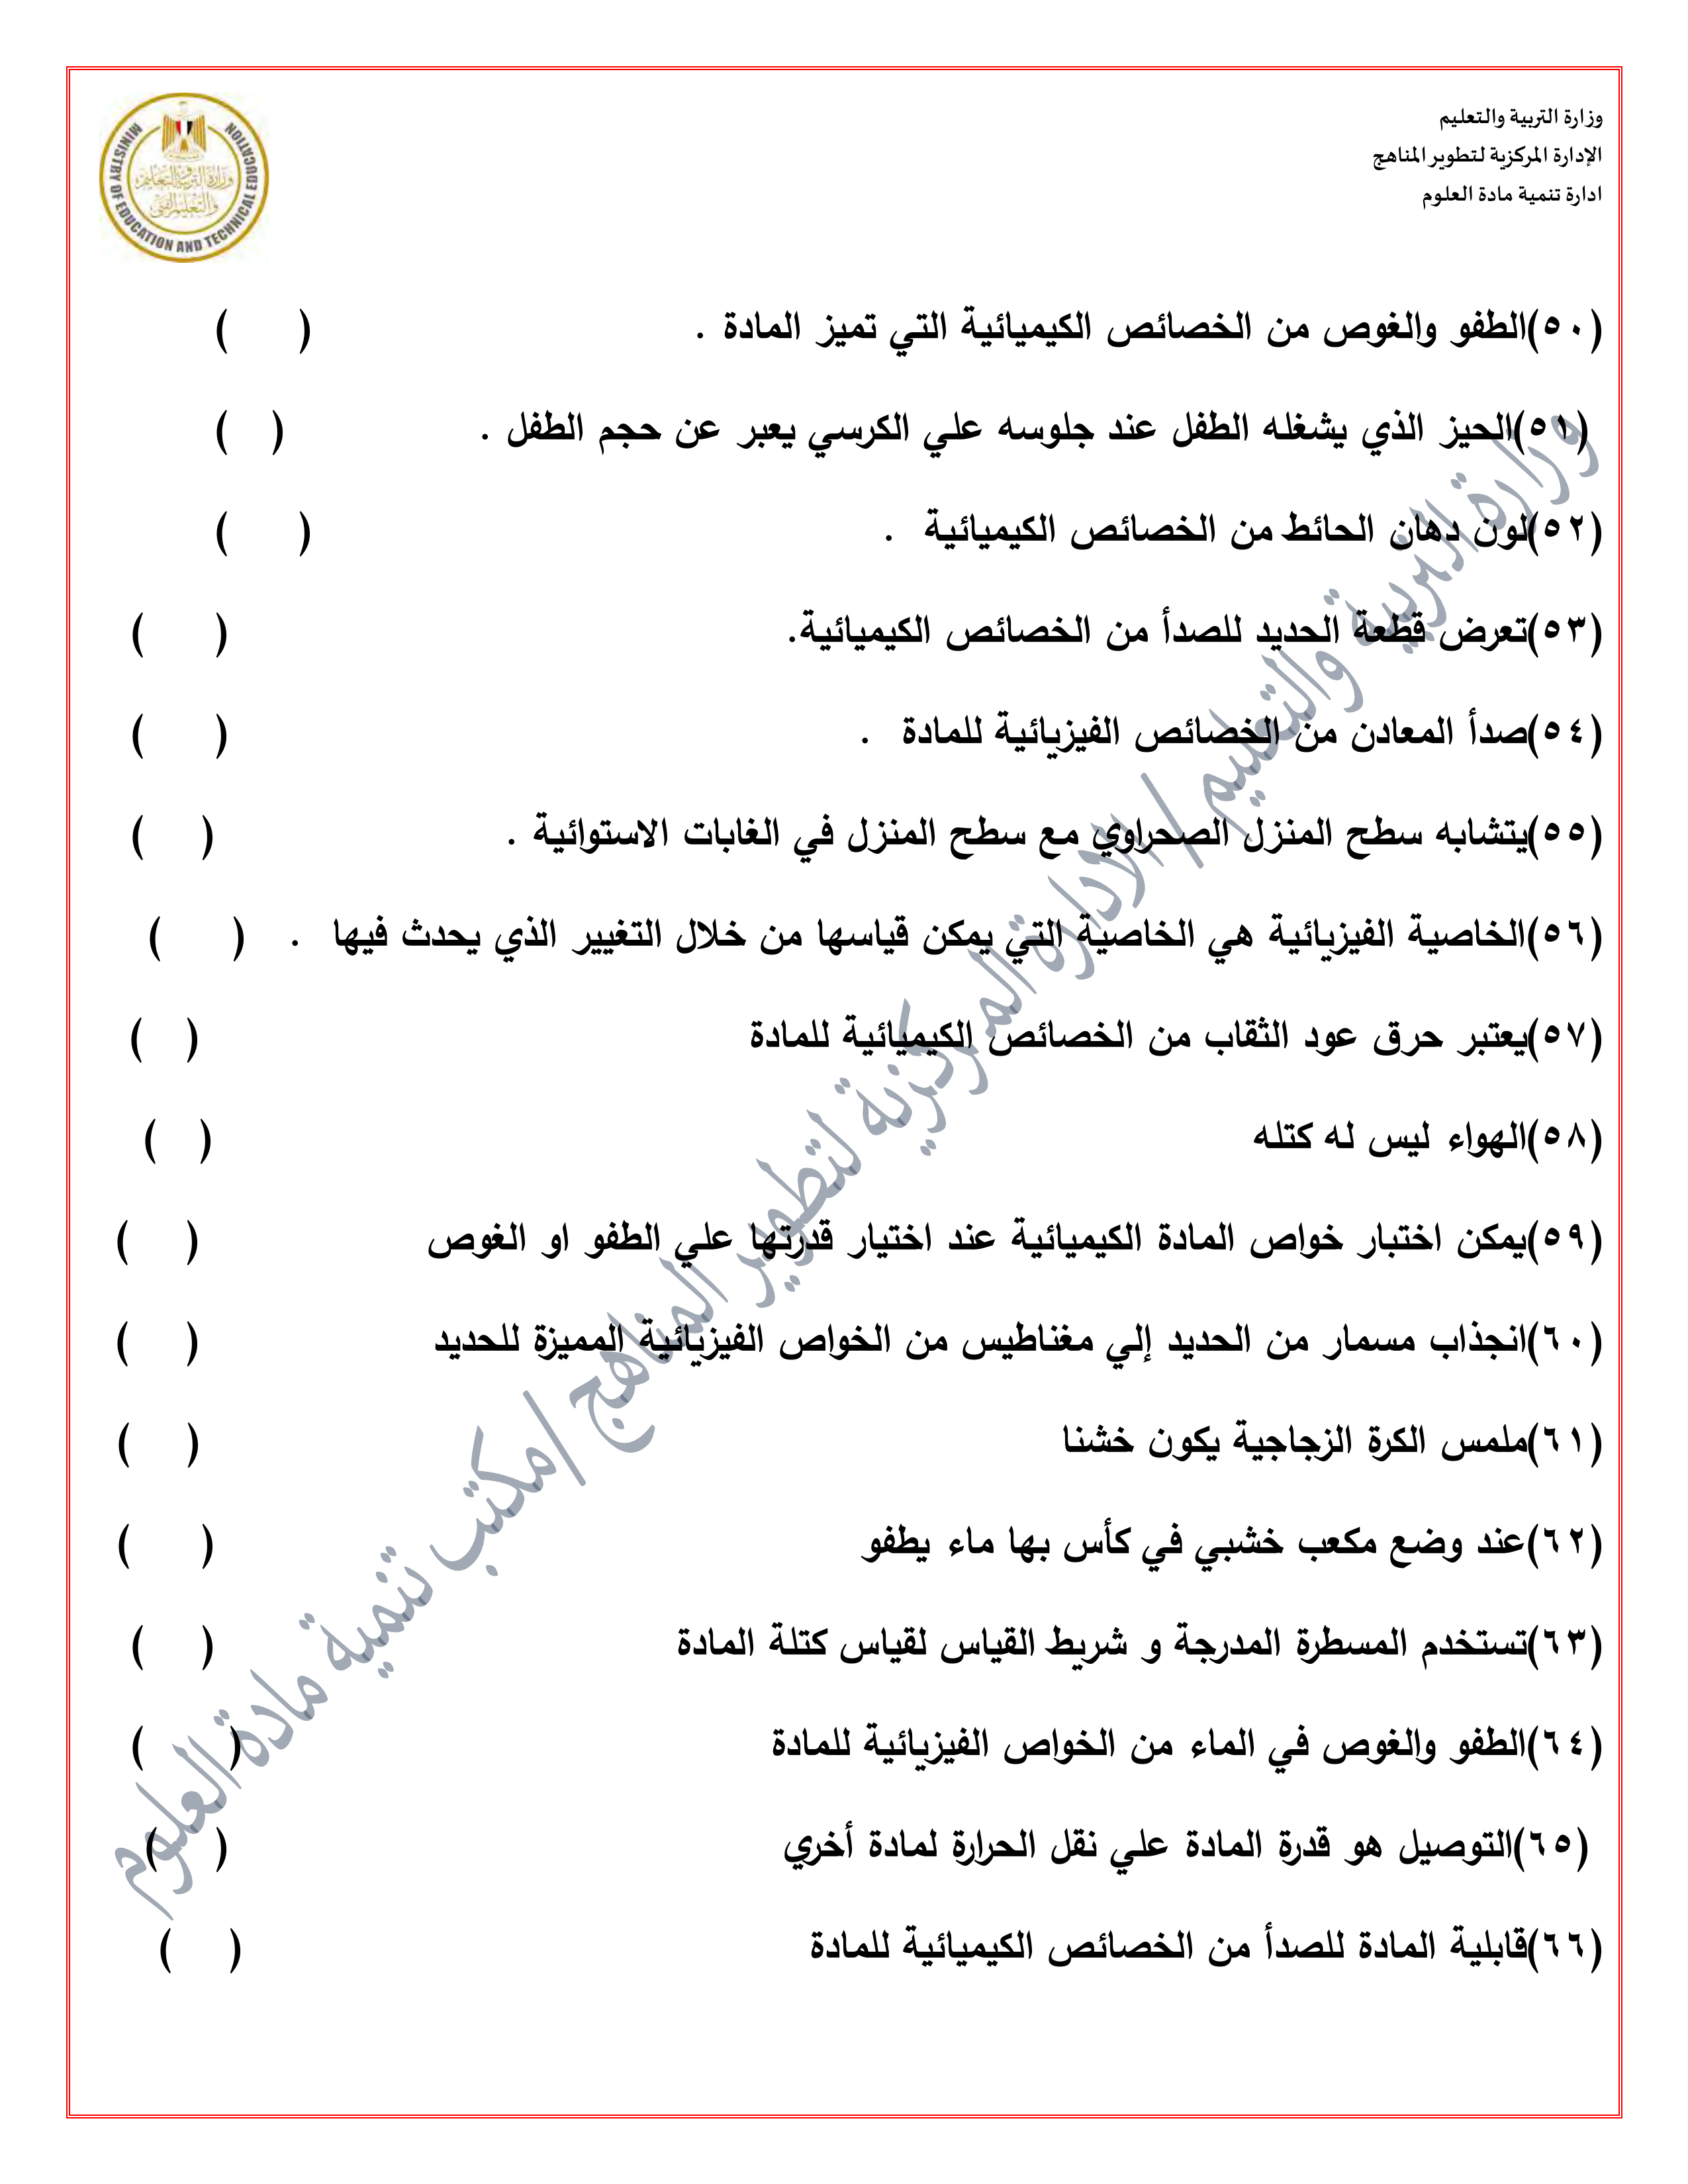 وزارة التربية والتعليم
الإدارة المركزية لتطوير المناهج
ادارة تنمية مادة العلوم
وزارة التربية والتعليم
والتعليم الفني
MINISTRY OF EDUCATION AND TECHNICAL EDUCATION
(٥٠)الطفو والغوص من الخصائص الكيميائية التي تميز المادة . ( )
(٥١)الحيز الذي يشغله الطفل عند جلوسه علي الكرسي يعبر عن حجم الطفل . ( )
(٥٢)لون دهان الحائط من الخصائص الكيميائية . ( )
(٥٣)تعرض قطعة الحديد للصدأ من الخصائص الكيميائية. ( )
(٥٤)صدأ المعادن من الخصائص الفيزيائية للمادة . ( )
(٥٥)يتشابه سطح المنزل الصحراوي مع سطح المنزل في الغابات الاستوائية . ( )
(٥٦)الخاصية الفيزيائية هي الخاصية التي يمكن قياسها من خلال التغيير الذي يحدث فيها . ( )
(٥٧)يعتبر حرق عود الثقاب من الخصائص الكيميائية للمادة ( )
(٥٨)الهواء ليس له كتله ( )
(٥٩)يمكن اختبار خواص المادة الكيميائية عند اختيار قدرتها علي الطفو او الغوص ( )
(٦٠)انجذاب مسمار من الحديد إلي مغناطيس من الخواص الفيزيائية المميزة للحديد ( )
(٦١)ملمس الكرة الزجاجية يكون خشنا ( )
(٦٢)عند وضع مكعب خشبي في كأس بها ماء يطفو ( )
(٦٣)تستخدم المسطرة المدرجة و شريط القياس لقياس كتلة المادة ( )
(٦٤)الطفو والغوص في الماء من الخواص الفيزيائية للمادة ( )
(٦٥)التوصيل هو قدرة المادة علي نقل الحرارة لمادة أخري ( )
(٦٦)قابلية المادة للصدأ من الخصائص الكيميائية للمادة ( )
وزارة التربية والتعليم / الادارة المركزية لتطوير المناهج /مكتب تنمية مادة العلوم